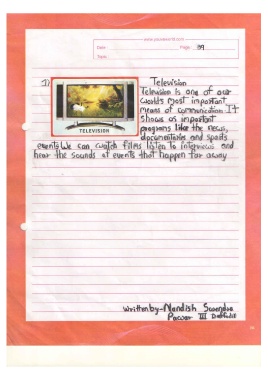 www.yourworld.com
Date
Page: 39
Topic
1)
TELEVISION
Television
Television is one of our
world's most important
means of communication It
shows as important
programs like the news,
documentaries and sports
events We can watch films listen to interviews and
hear the sounds of events that happen far away
Writtenby-Nandish